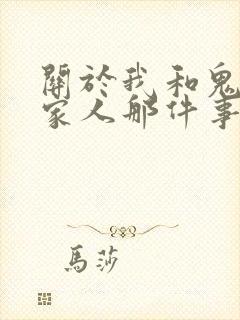 關於我和鬼
家人那件事
馬莎